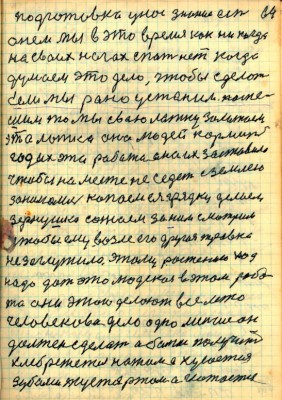 подготовка у нос знание есть 64
онем мы в это время как ни когда
на своих ногах спат нет когда
думаем это дело, чтобы сделат
Если мы рано устаним. поте-
шим то мы свою латку залатаем
эта латка она людей кормит
год их эта работа она их заставила
чтобы на месте не седет с землею
занимали копаем в зарядку делаем
зернушко сожаем за ним смотрим
чтобы ему возле его другая травка
не заглушила. этому растению ход
надо дат это людская в этом рабо-
та они этой делают все лето
человекова дело одно мение он
должен сделат а батки получит
хлеб режется ножом а кусается
зубами жуется ртом а глотается